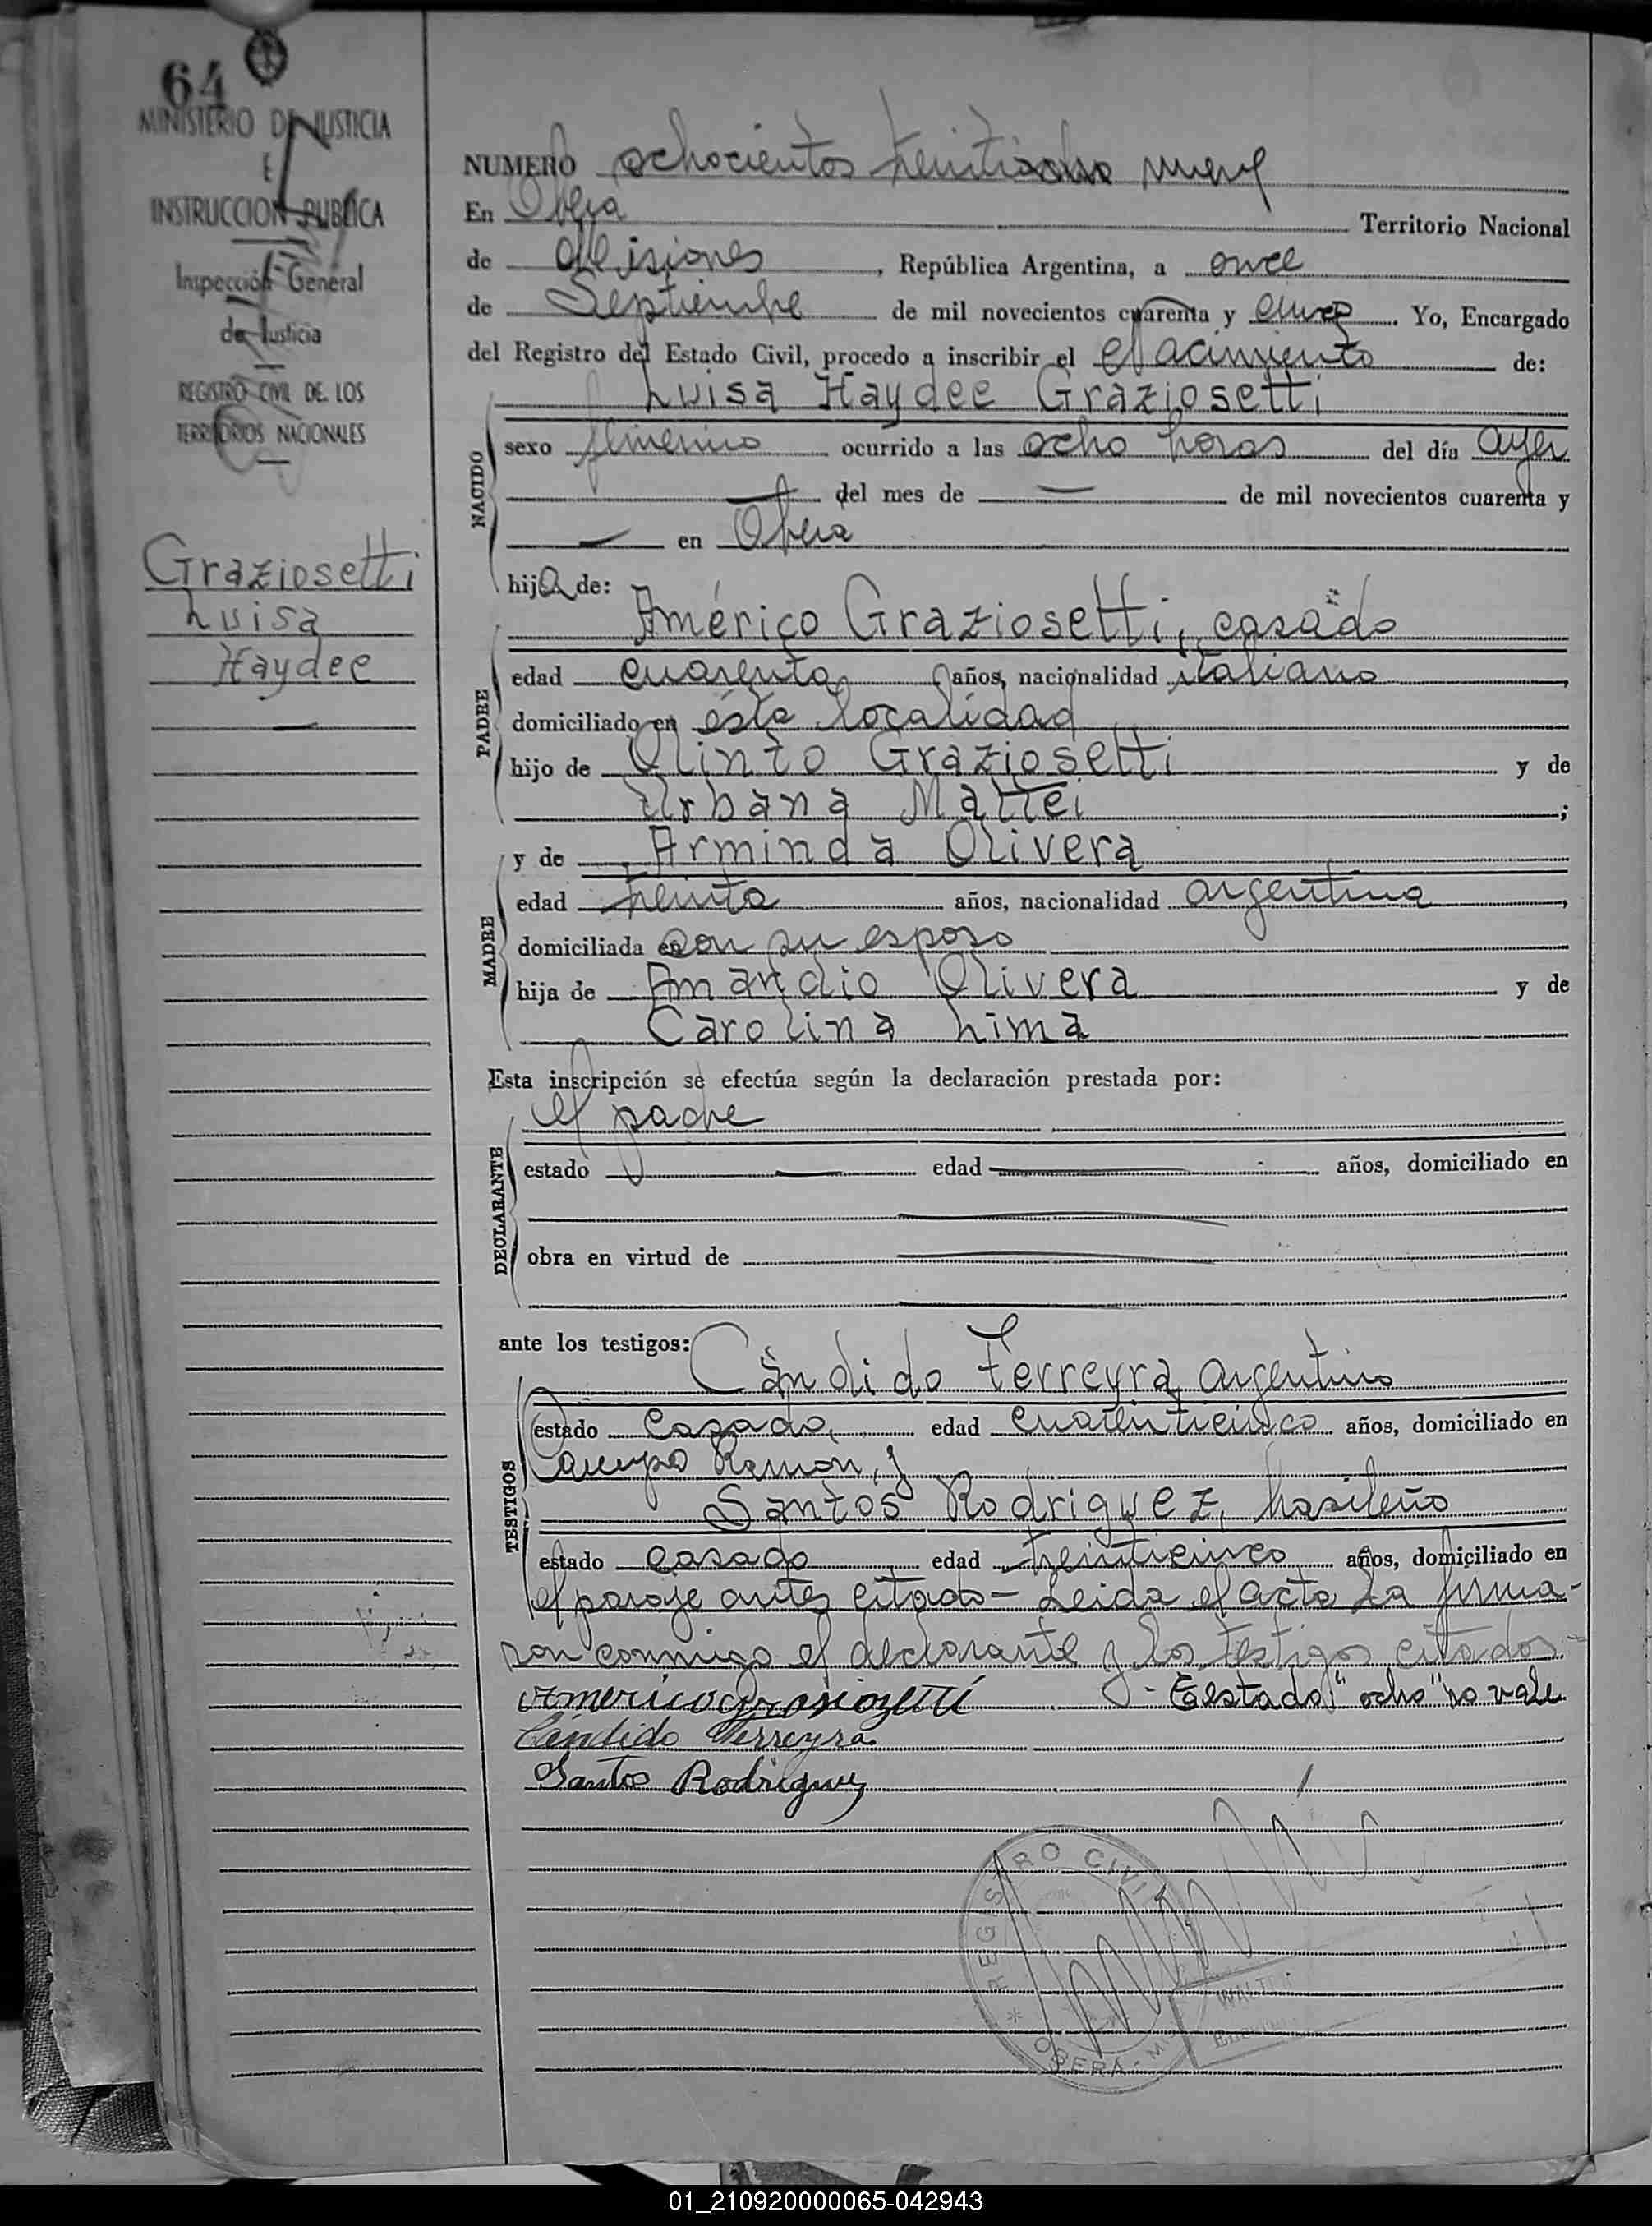 64
MINISTERIO DE JUSTICIA
E
INSTRUCCION PUBLICA
Inspección General
de Justicia
REGISTRO CIVIL DE LOS
TERRITORIOS NACIONALES
Graziosetti
Luisa
Haydee
NUMERO ochocientos treintiocho nueve
En Oberá Territorio Nacional
de Misiones, República Argentina, a once
de Septiembre de mil novecientos cuarenta y cinco. Yo, Encargado
del Registro del Estado Civil, procedo a inscribir el Nacimiento de:
Luisa Haydee Graziosetti
NACIDO
sexo femenino ocurrido a las ocho horas del día ayer
— del mes de — de mil novecientos cuarenta y
— en Oberá
hija de:
Américo Graziosetti, casado
PADRE
edad cuarenta años, nacionalidad italiano,
domiciliado en ésta localidad
hijo de Olinto Graziosetti y de
Urbana Mattei;
MADRE
y de Arminda Olivera
edad treinta años, nacionalidad argentina,
domiciliada en con su esposo
hija de Amandio Olivera y de
Carolina Lima
Esta inscripción se efectúa según la declaración prestada por:
DECLARANTE
el padre
estado — edad — años, domiciliado en
—
obra en virtud de —
—
ante los testigos:
TESTIGOS
Cándido Ferreyra, argentino
estado casado, edad cuarenticinco años, domiciliado en
Campo Ramon, y
Santos Rodriguez, brasileño
estado casado edad treinticinco años, domiciliado en
el paraje antes citado — Leida el acta la firma-
ron conmigo el declarante y los testigos citados-
- Testado: "ocho" no vale
Americo Graziozetti
Cándido Ferreyra
Santos Rodriguez
REGISTRO CIVIL
OBERA - M
WALT
01_210920000065-042943